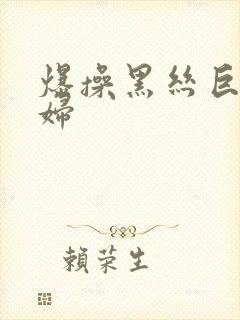 爆操黑丝巨
婦
賴荣生